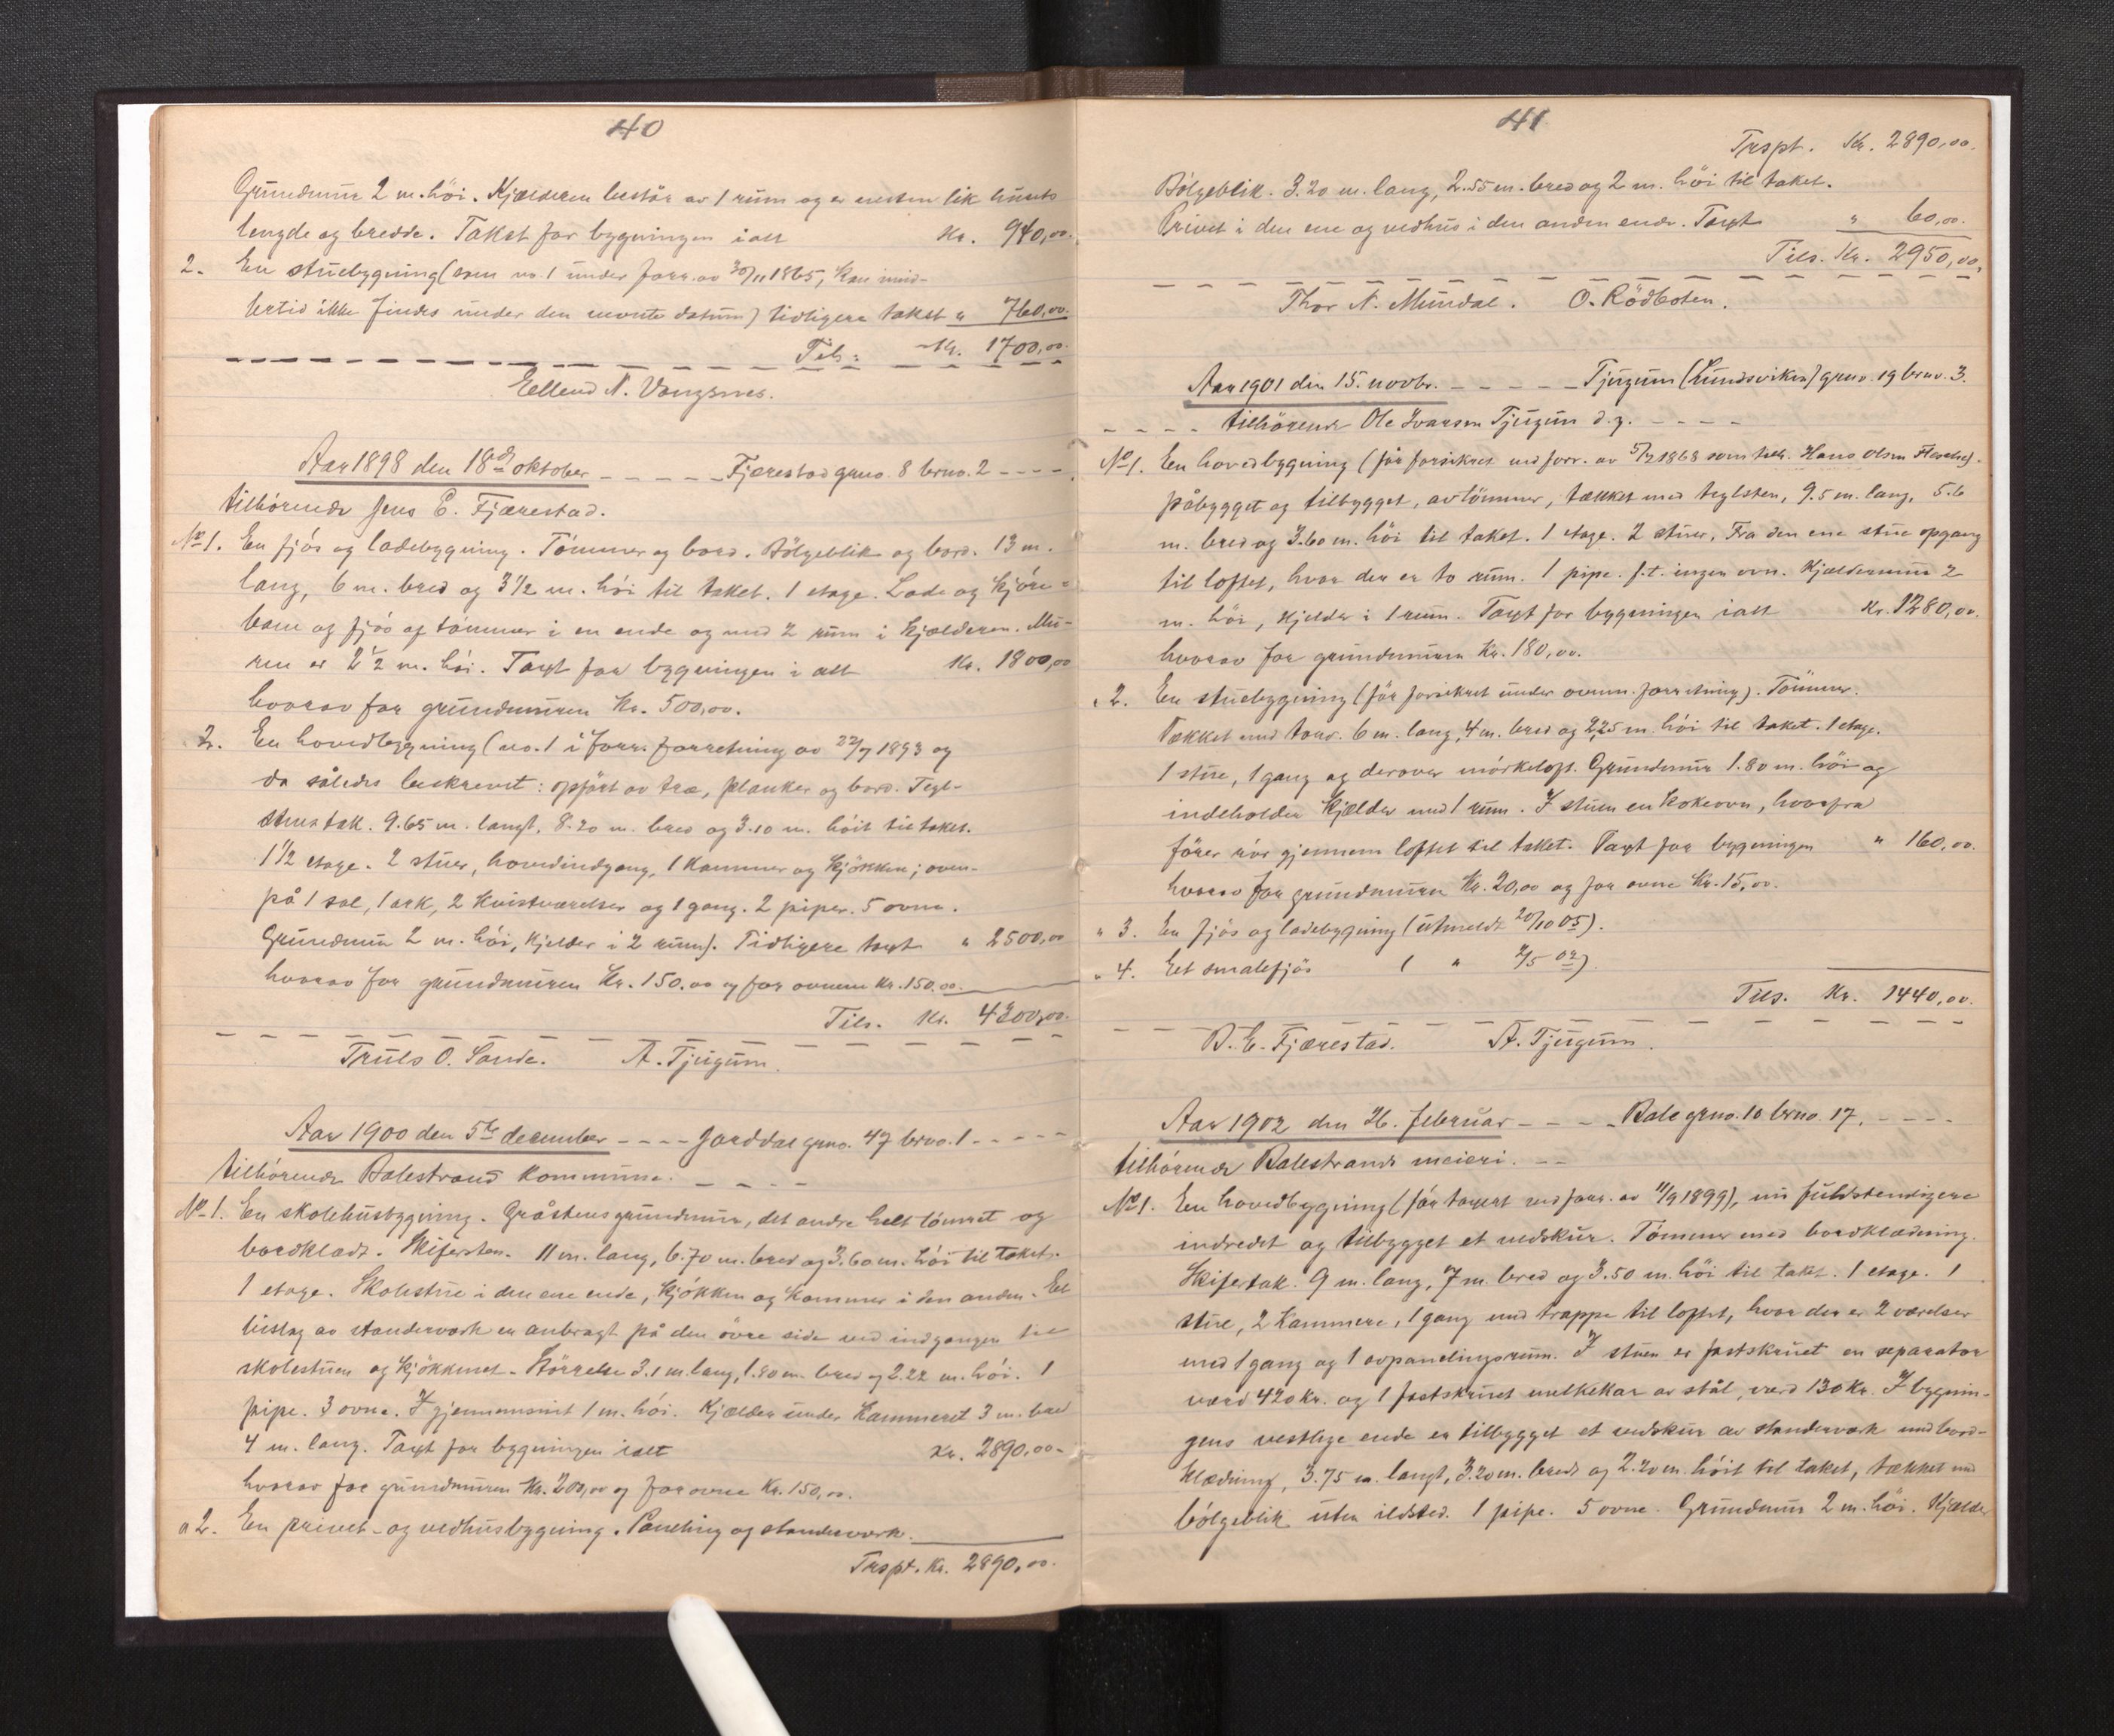 40
Grundmur 2 m. höi. Kjælderen består av 1 rum og er nesten lik husets
lengde og bredde. Takst for bygningen ialt Kr. 940,00.
2. En stuebygning (som no. 1 under forr. av 30/11 1865, kan imid-
lertid ikke findes under den nevnte datum) tidligere takst " 760,00.
Tils. Kr. 1700,00.
Ellend N. Vangsnes.
Aar 1898 den 18de oktober - - - - - Fjærestad grno. 8 brno. 2 - - - -
tilhörende Jens E. Fjærestad.
No 1. En fjös og ladebygning. Tömmer og bord. Bölgeblik og bord. 13 m.
lang, 6 m. bred og 3 1/2 m. höi til taket. 1 etage. Lade og kjöre-
bane og fjös af tömmer i en ende og med 2 rum i kjælderen. Mu-
ren er 2 1/2 m. höi. Taxt for bygningen i alt Kr. 1800,00
hvorav for grundmuren Kr. 500,00.
" 2. En hovedbygning (no. 1 i forr. forretning av 22/7 1893 og
da således beskrevet: opfört av træ, planker og bord. Tegl-
stenstak. 9.65 m. langt, 8.20 m. bred og 3.10 m. höit til taket.
1 1/2 etage. 2 stuer, hovedindgang, 1 kammer og kjökken; oven-
på 1 sal, 1 ark, 2 kvistværelser og 1 gang. 2 piper. 5 ovne.
Grundmur 2 m. höi, kjelder i 2 rum). Tidligere taxt " 2500,00
hvorav for grundmuren Kr. 150.00 og for ovnene Kr. 150.00.
Tils. Kr. 4300,00.
Truls O. Sande. A. Tjugum.
Aar 1900 den 5te december - - - - Jorddal grno. 47 brno. 1 - - - - -
tilhörende Balestrand kommune. - - - -
No 1. En skolehusbygning. Gråstensgrundmur, det andre helt tömret og
bordklædt. Skifersten. 11 m. lang, 6.70 m. bred og 3.60 m. höi til taket.
1 etage. Skolestue i den ene ende, kjökken og kammer i den anden. Et
bislag av standerverk er anbragt på den övre side ved indgangen til
skolestuen og kjökkenet. Störrelse 3.1 m. lang, 1.80 m. bred og 2.22 m. höi. 1
pipe. 3 ovne. I gjennemsnit 1 m. höi. Kjælder under kammeret 3 m. bred
4 m. lang. Taxt for bygningen ialt Kr. 2890,00.
hvorav for grundmuren Kr. 200,00 og for ovne Kr. 150,00.
" 2. En privet- og vedhusbygning. Paneling og standerverk.
Trspt. Kr. 2890,00.
41
Trspt. Kr. 2890,00.
Bölgeblik. 3.20 m. lang, 2.55 m. bred og 2 m. höi til taket.
Privet i den ene og vedhus i den anden ende. Taxt " 60,00.
Tils. Kr. 2950,00.
Thor N. Mundal. O. Rödboten.
Aar 1901 den 15. novbr. - - - - - Tjugum (Lundsviken) grno. 19 brno. 3.
- - - - tilhörende Ole Ivarsen Tjugum d.y. - - - -
No 1. En hovedbygning (för forsikret ved forr. av 5/7 1868 som tilh. Hans Olsen).
påbygget og tilbygget, av tömmer, tækket med teglsten, 9.5 m. lang, 5.6
m. bred og 3.60 m. höi til taket. 1 etage. 2 stuer. Fra den ene stue opgang
til loftet, hvor der er to rum. 1 pipe. f.t. ingen ovn. Kjældermur 2
m. höi, kjelder i 1 rum. Taxt for bygningen ialt Kr. 1280,00.
hvorav for grundmuren Kr. 180,00.
" 2. En stuebygning (för forsikret under ovenn. forretning). Tömmer.
Tækket med torv. 6 m. lang, 4 m. bred og 2,25 m. höi til taket. 1 etage.
1 stue, 1 gang og derover mörkeloft. Grundmur 1.80 m. höi og
indeholder kjælder med 1 rum. I stuen en kokeovn, hvorfra
förer rör gjennem loftet til taket. Taxt for bygningen " 160,00.
hvorav for grundmuren Kr. 20,00 og for ovne Kr. 15,00.
" 3. En fjös og ladebygning (utmeldt 20/10 05).
" 4. Eet smalefjös ( " 2/5 02)
Tils. Kr. 1440,00.
B. E. Fjærestad. A. Tjugum.
Aar 1902 den 26. februar - - - - Bale grno. 10 brno. 17. - - - -
tilhörende Balestrands meieri. - -
No 1. En hovedbygning (för taxert ved forr. av 11/9 1899), nu fuldstendigere
indredet og tilbygget et vedskur. Tömmer med bordklædning.
Skifertak. 9 m. lang, 7 m. bred og 3.50 m. höi til taket. 1 etage. 1
stue, 2 kammere, 1 gang med trappe til loftet, hvor der er 2 værelser
med 1 gang og 1 avpanelingsrum. I stuen er fastskruet en separator
værd 420 kr. og 1 fastskruet melkekar av stål, værd 130 kr. I bygnin-
gens vestlige ende er tilbygget et vedskur av standerværk med bord-
klædning, 3.75 m. langt, 3.20 m. bredt og 2.20 m. höit til taket, tækket med
bölgeblik uten ildsted. 1 pipe. 5 ovne. Grundmur 2 m. höi. Kjælder